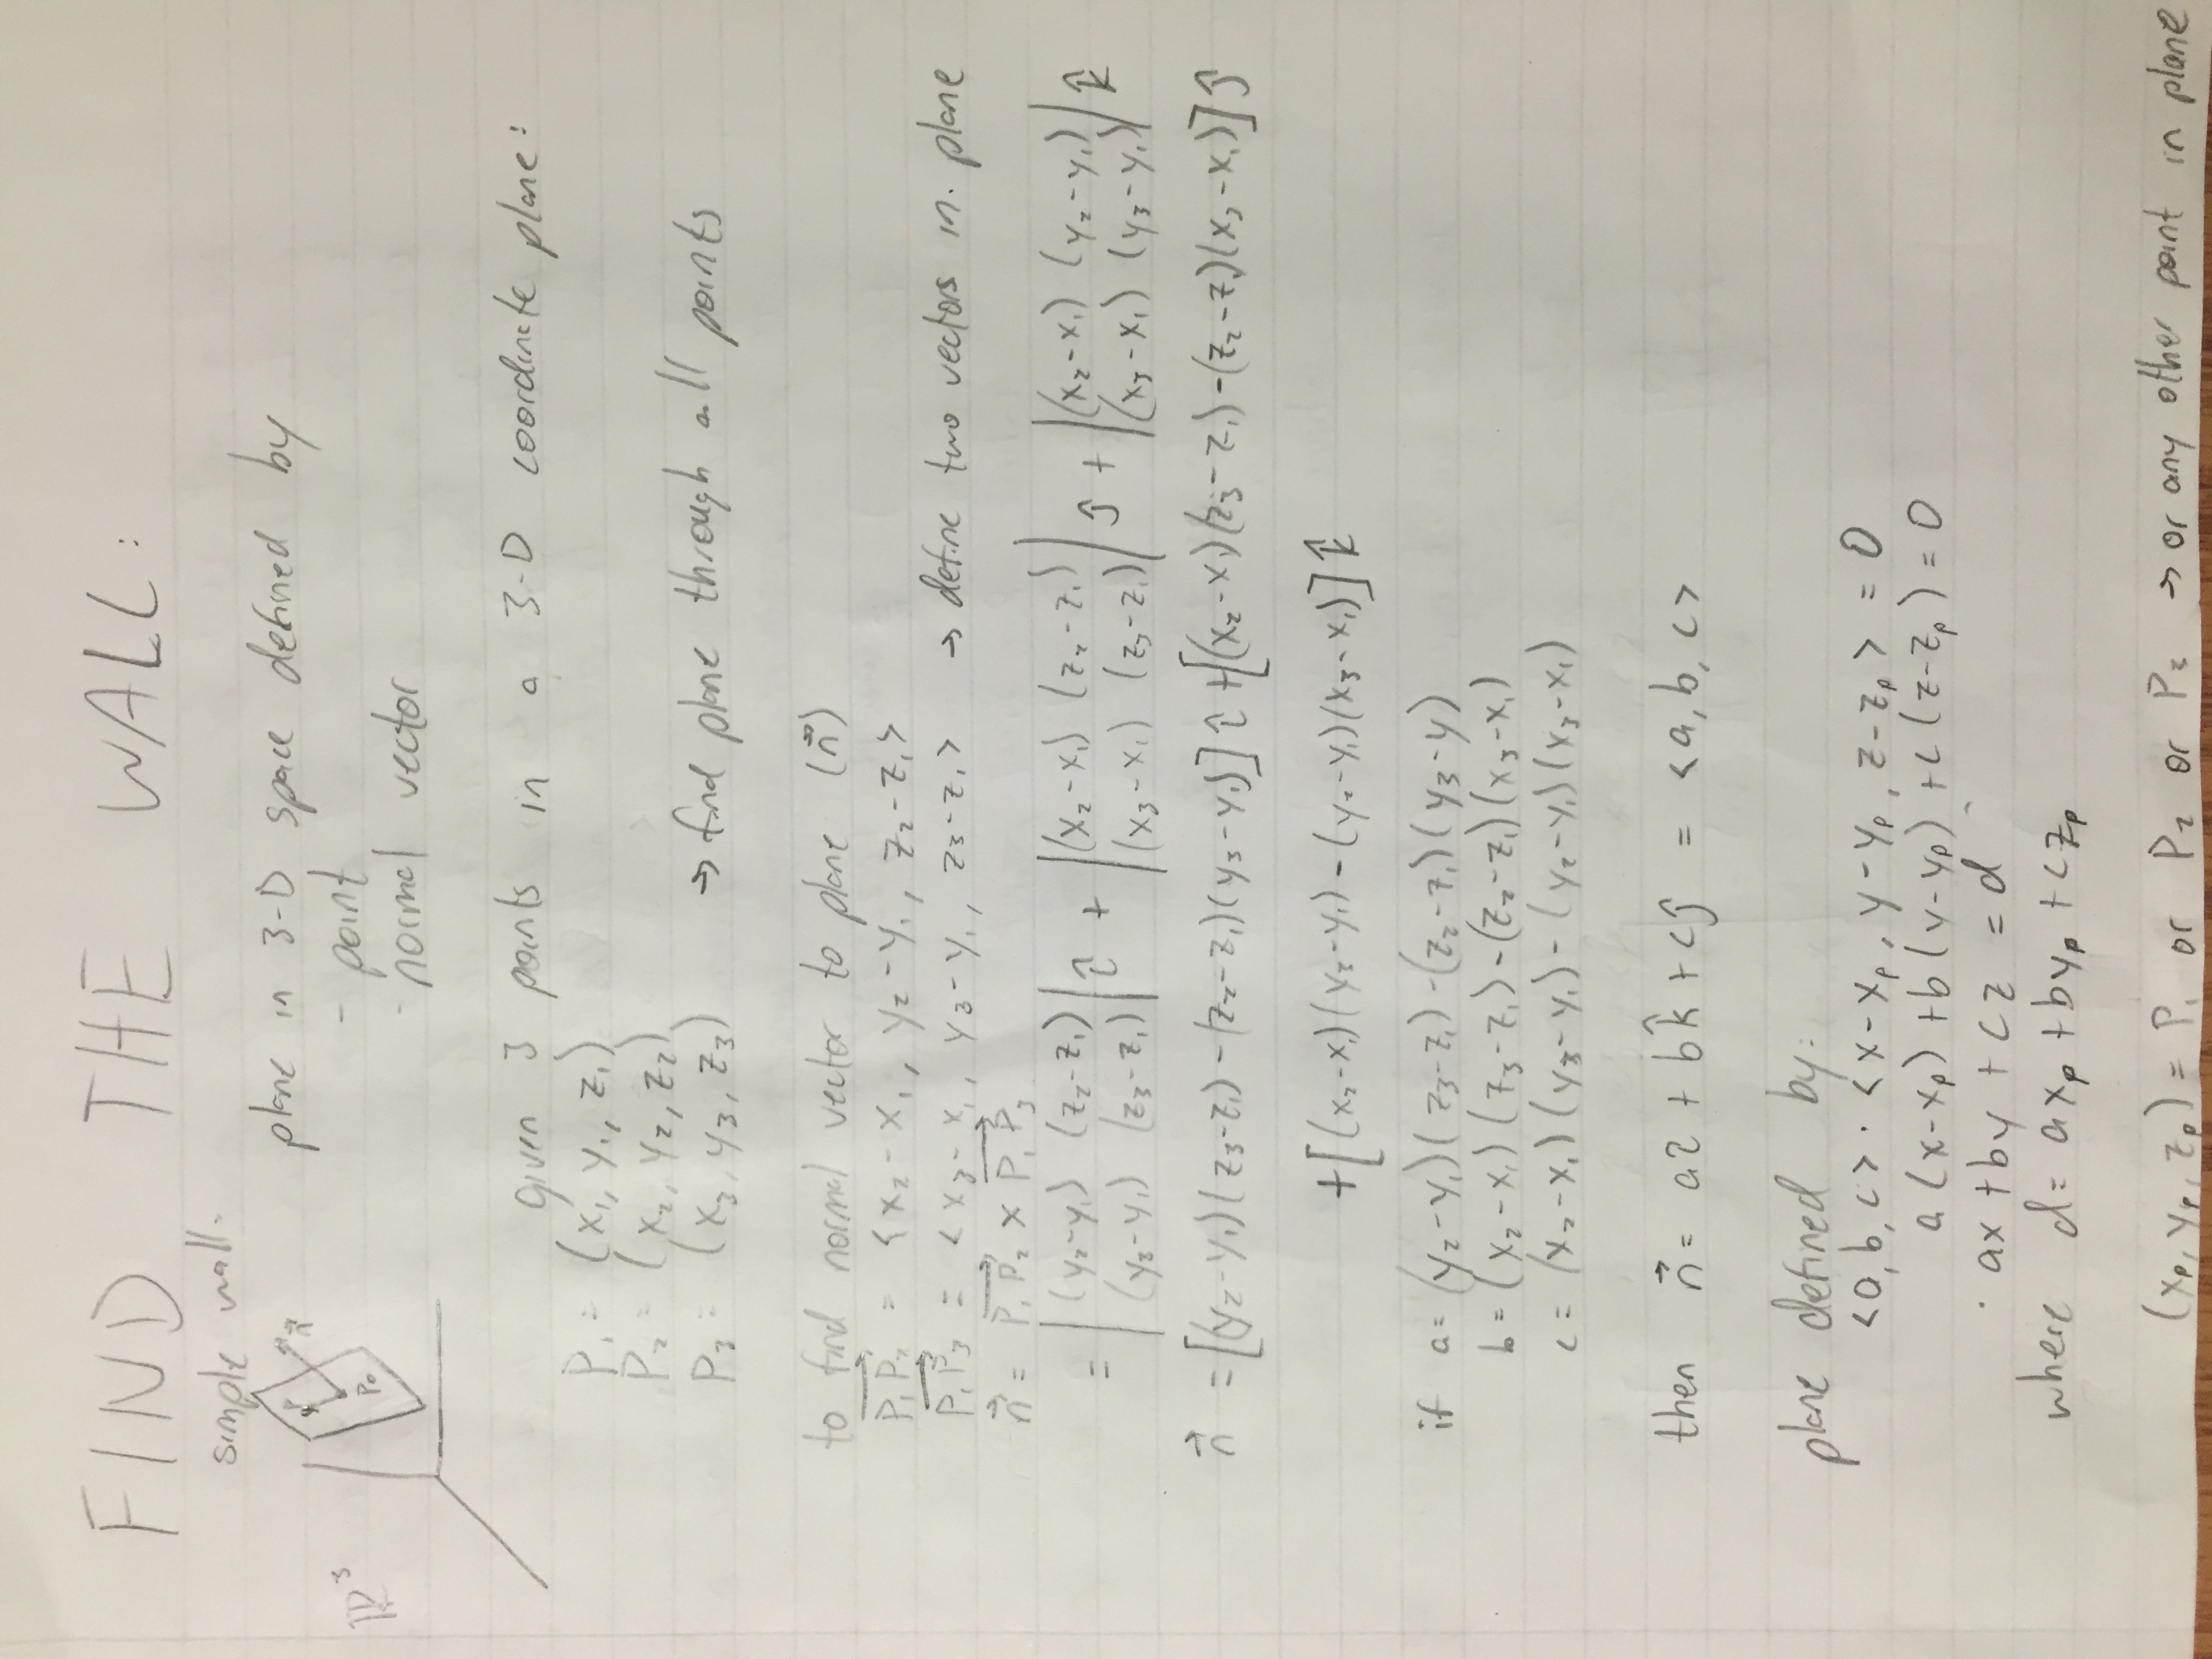 FIND THE WALL:
simple wall.
ℝ³
P
n⃗
P₀
plane in 3-D space defined by
- point
- normal vector
given 3 points in a 3-D coordinate plane:
P₁ = (x₁, y₁, z₁)
P₂ = (x₂, y₂, z₂)
P₃ = (x₃, y₃, z₃) → find plane through all points
to find normal vector to plane (n⃗)
P₁P₂ = <x₂-x₁, y₂-y₁, z₂-z₁>
P₁P₃ = <x₃-x₁, y₃-y₁, z₃-z₁> → define two vectors in. plane
n⃗ = P₁P₂ × P₁P₃
= |(y₂-y₁) (z₂-z₁)| î + |(x₂-x₁) (z₂-z₁)| ĵ + |(x₂-x₁) (y₂-y₁)| k̂
|(y₃-y₁) (z₃-z₁)| |(x₃-x₁) (z₃-z₁)| |(x₃-x₁) (y₃-y₁)|
n⃗ = [(y₂-y₁)(z₃-z₁) - (z₂-z₁)(y₃-y₁)] î + [(x₂-x₁)(z₃-z₁) - (z₂-z₁)(x₃-x₁)] ĵ
+ [(x₂-x₁)(y₃-y₁) - (y₂-y₁)(x₃-x₁)] k̂
if a = (y₂-y₁)(z₃-z₁) - (z₂-z₁)(y₃-y)
b = (x₂-x₁)(z₃-z₁) - (z₂-z₁)(x₃-x₁)
c = (x₂-x₁)(y₃-y₁) - (y₂-y₁)(x₃-x₁)
then n⃗ = aî + bk̂ + cĵ = <a, b, c>
plane defined by:
<a, b, c> · <x-xₚ, y-yₚ, z-zₚ> = 0
a(x-xₚ) + b(y-yₚ) + c(z-zₚ) = 0
· ax + by + cz = d
where d = axₚ + byₚ + czₚ
(xₚ, yₚ, zₚ) = P₁ or P₂ or P₃ → or any other point in plane